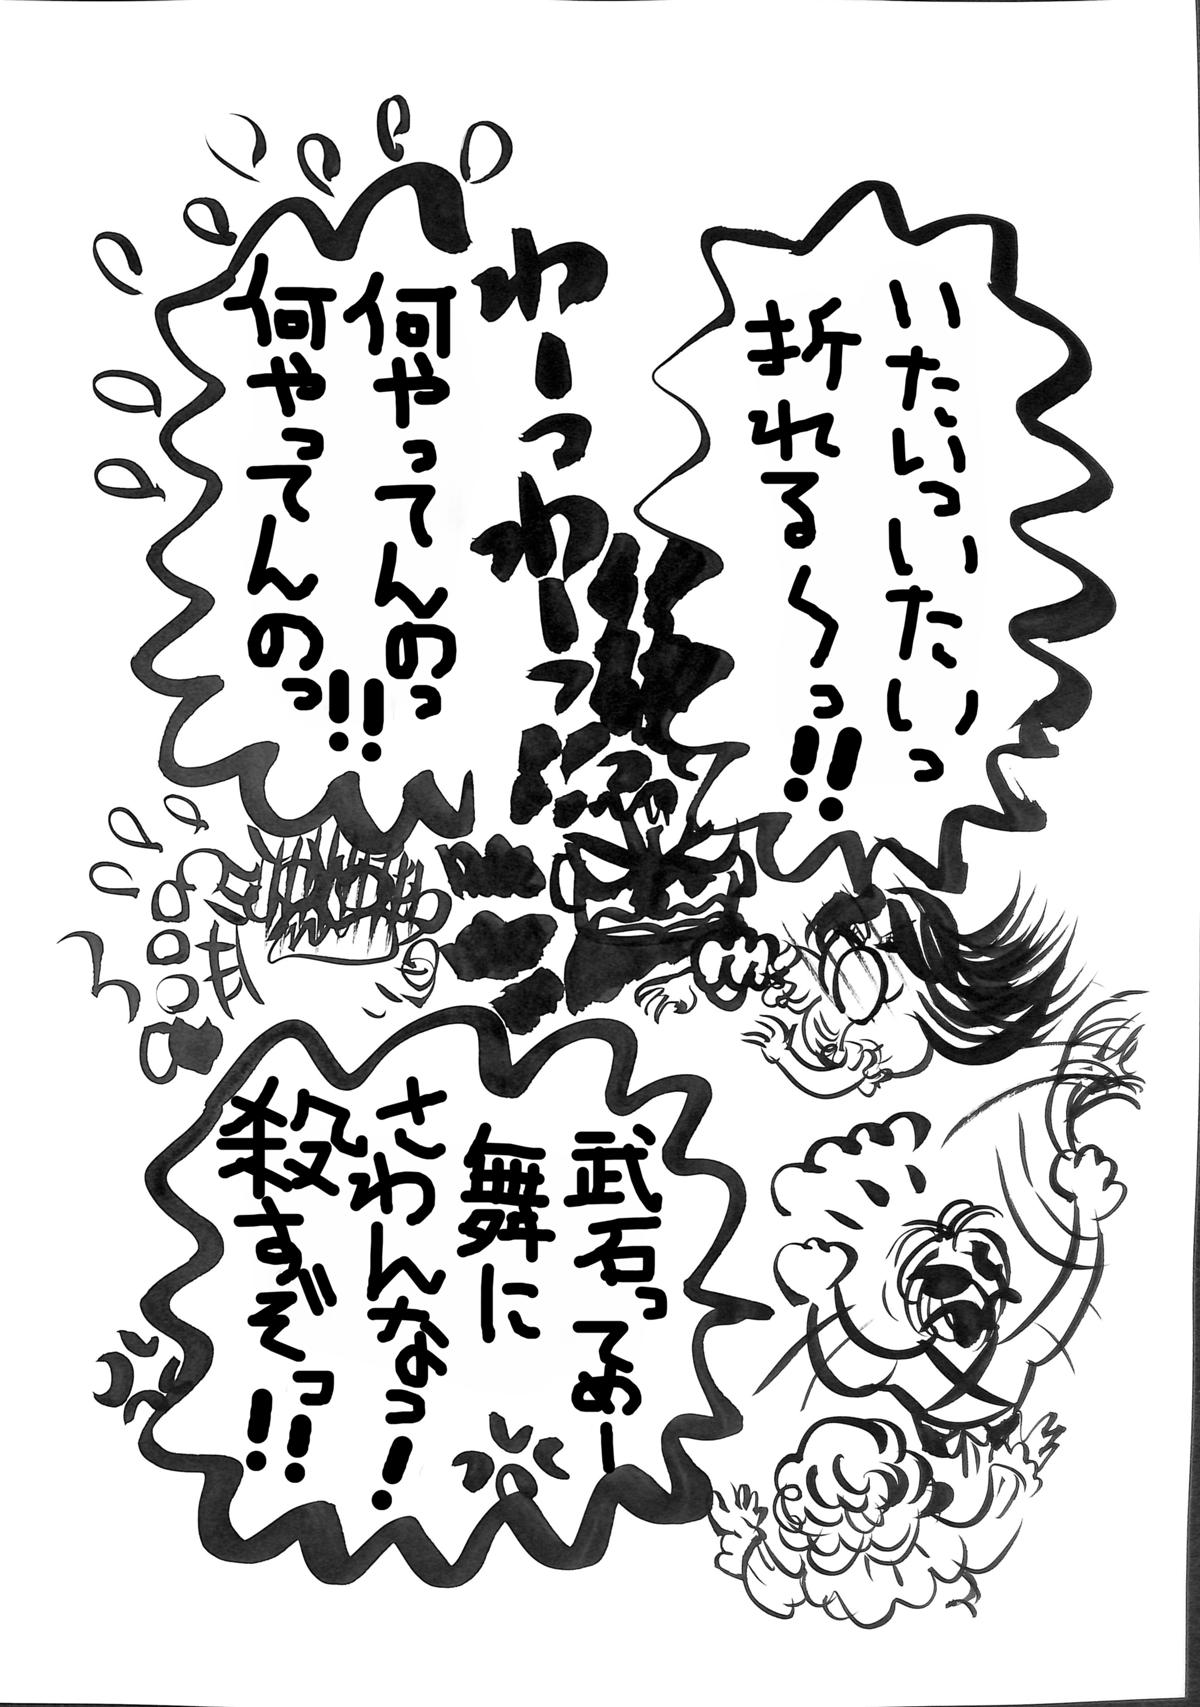 いたいっいたいっ
折れる～っ!!
わーっわーっ
何やってんのっ
何やってんのっ!!
武石ってめー
舞に
さわんなっ!
殺すぞっ!!